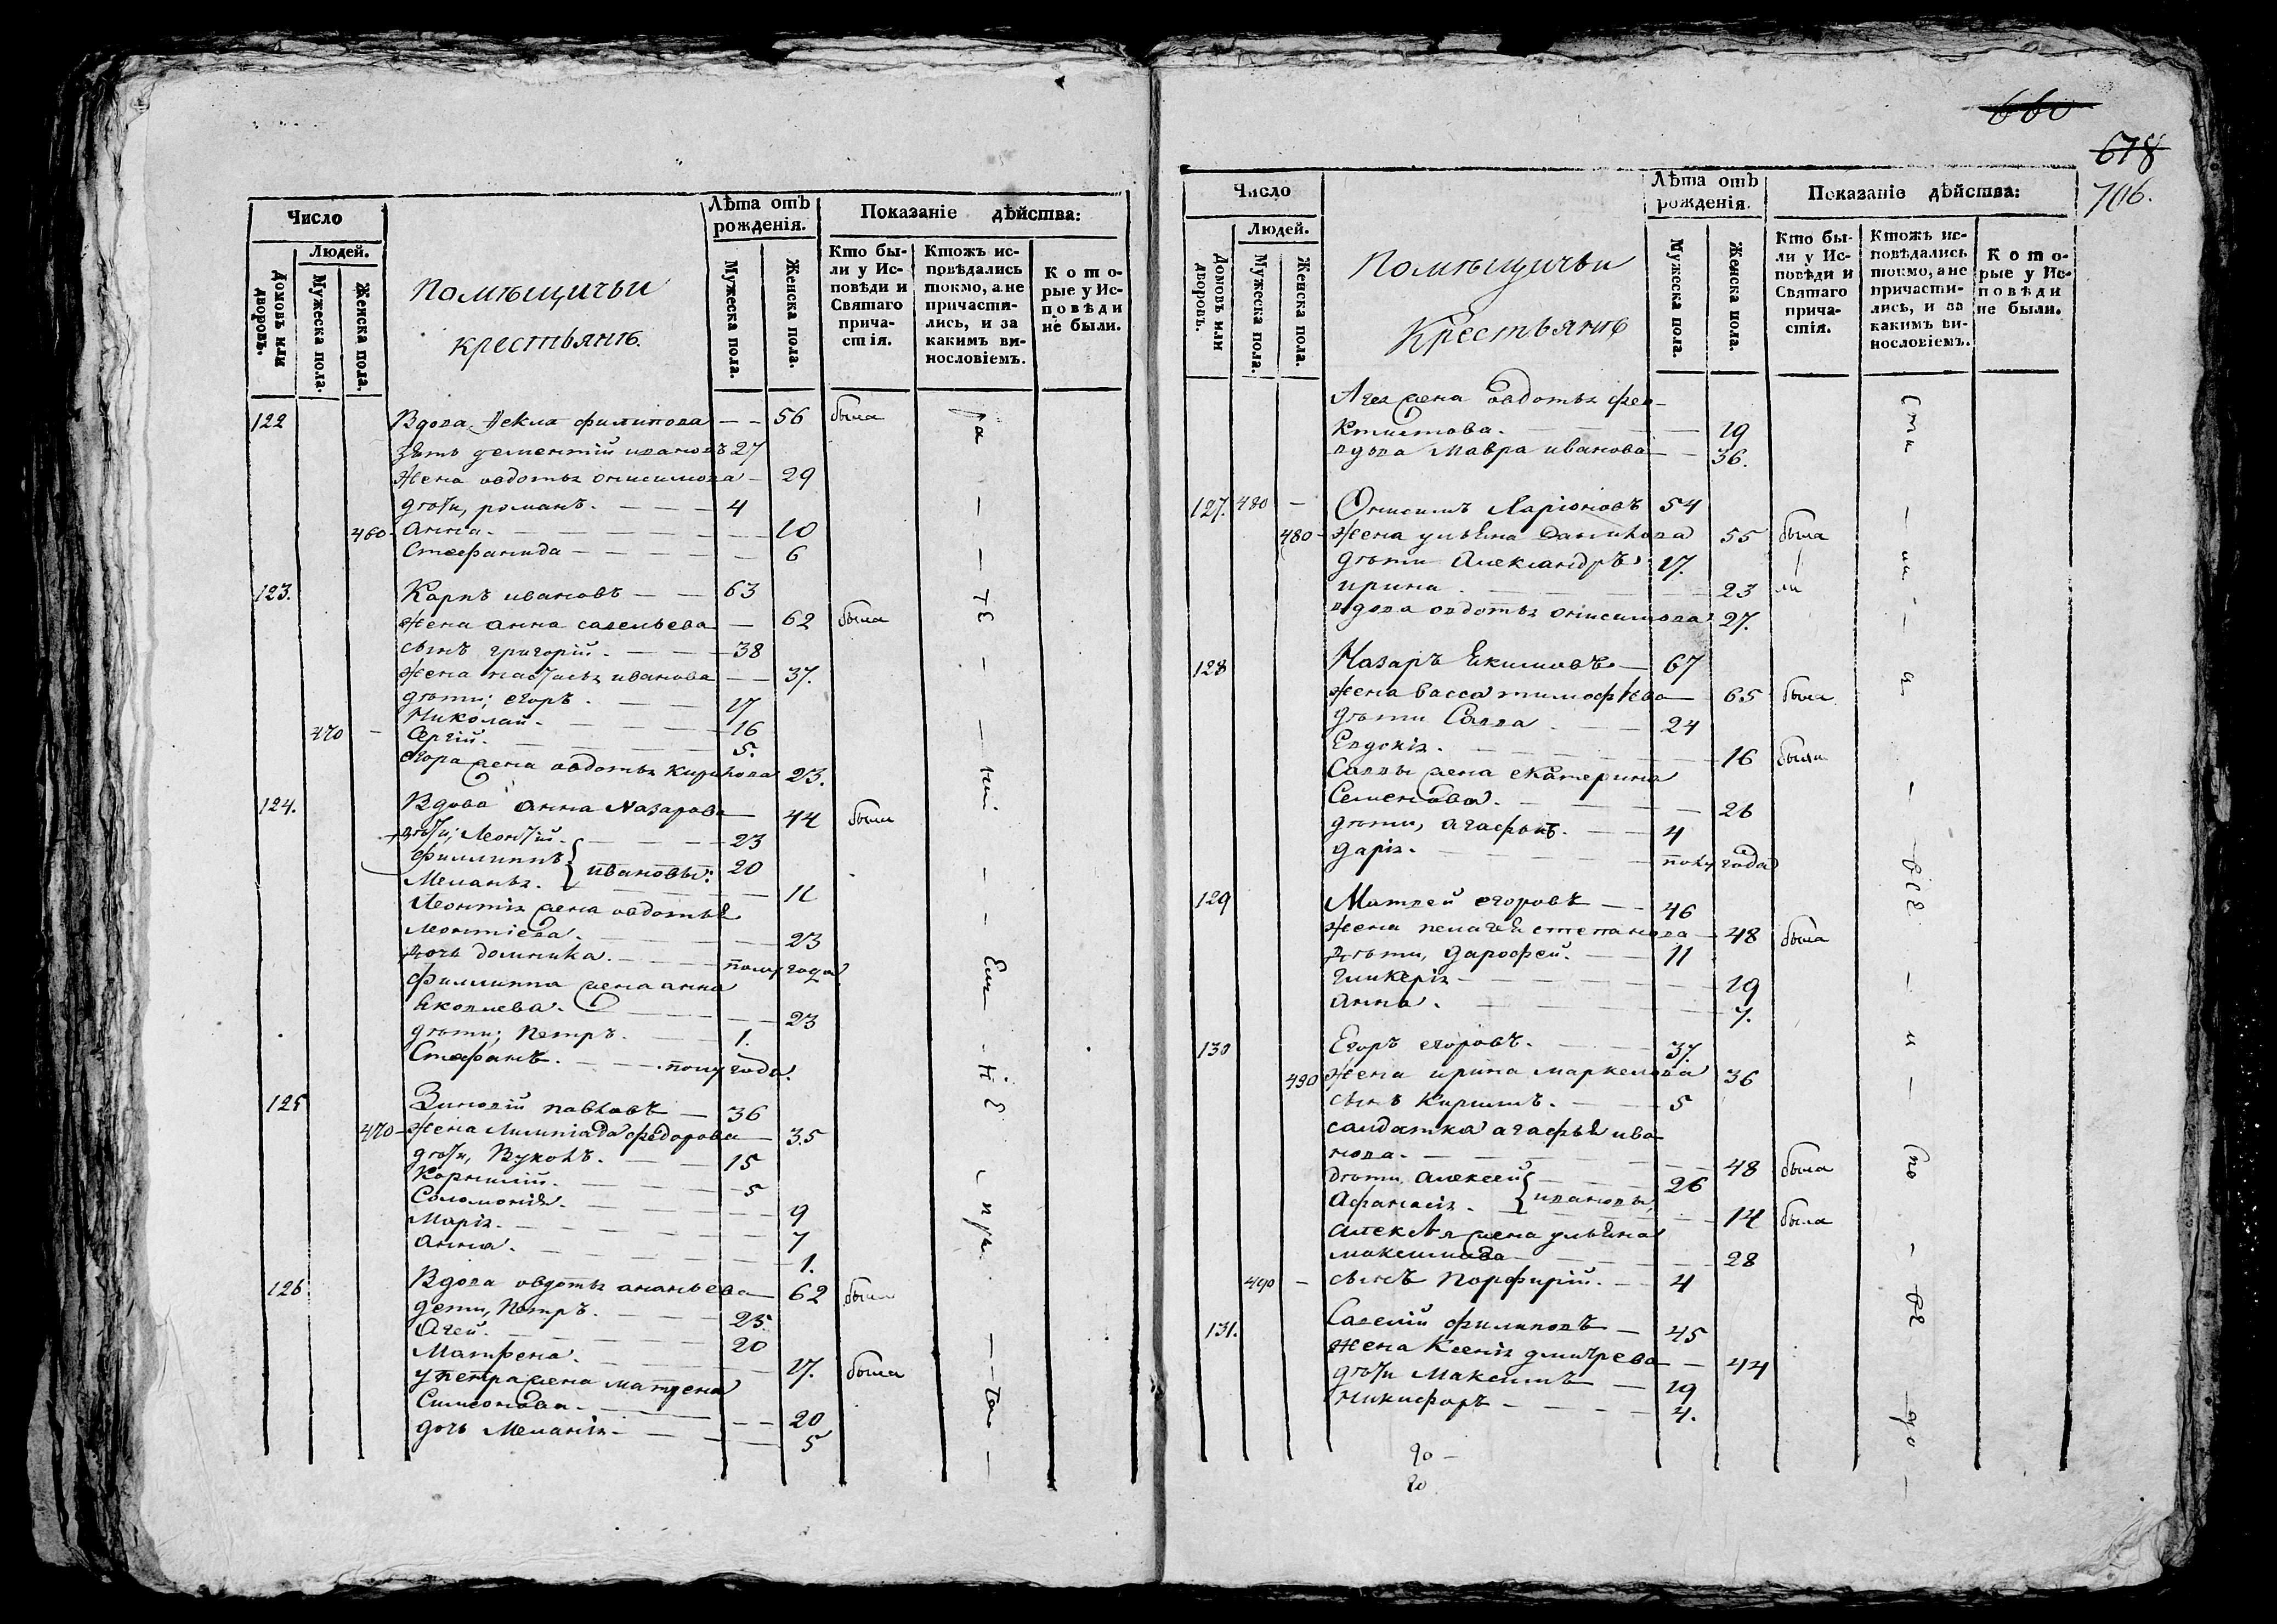 660
678
706.
Число
Людей.
Домовъ или дворовъ.
Мужеска пола.
Женска пола.
Помѣщичьи
крестьянѣ.
Лѣта отъ рожденія.
Мужеска пола.
Женска пола.
Показаніе дѣйства:
Кто были у Исповѣди и Святаго причастія.
Ктожъ исповѣдались токмо, а не причастились, и за какимъ винословіемъ.
Которые у Исповѣди не были.
122 Вдова Фекла филипова — — 56 была
зять дементій ивановъ 27
Жена овдотья онисимова — 29
дѣти, романъ. — — — 4
460 - Анна. — — — 10
Стефанида — — — 6
123. Карпъ ивановъ — — 63
Жена анна савельева — 62 была
сынъ григорій. — — — 38
Жена настасья иванова — — 37.
дѣти; егоръ. — — 17
Николай. — — — 16
470 - Сергій. — — — 5.
егора жена овдотья кирилова 23.
124. Вдова анна Назарова — 44 была
дѣти; Леонтій. — — — 23
филиппъ } ивановы: 20
Меланья. — — 11
Леонтія жена овдотья
леонтіева. — — — 23
дочь домника. — — полугода
филиппа жена анна
Яковлева. — — — 23
дѣти; Петръ. — — 1.
Стефанъ. — — полугода.
125 Зиновій павловъ — 36
470 - Жена Лимпіада федорова — 35
дѣти, Вуколъ. — — 15
Корнилій. — — — 5
Соломонія. — — — 9
Марія. — — — 7
анна. — — — 1.
126 Вдова овдотья ананьева — 62 была
дети, Петръ. — — 25
Агей. — — — 20
Матрена. — — — 17. была
у петра жена матрена
Симеонова. — — — 20
дочь Меланія — — — 5
Число
Людей.
Домовъ или дворовъ.
Мужеска пола.
Женска пола.
Помѣщичьи
Крестьянѣ
Лѣта отъ рожденія.
Мужеска пола.
Женска пола.
Показаніе дѣйства:
Кто были у Исповѣди и Святаго причастія.
Ктожъ исповѣдались токмо, а не причастились, и за какимъ винословіемъ.
Которые у Исповѣди не были.
Агея жена овдотья фео-
ктистова. — — 19
вдова Мавра иванова — — 36.
127. 480 — Онисимъ Ларіоновъ 54
480 - Жена ульяна данилова 55 была
дѣти Александръ 17.
ирина — — — 23
вдова овдотья онисимова 27.
128 Назаръ Екимовъ — 67
Жена васса тимофѣева — 65 была
дѣти Савва. — — 24
Евдокія. — — — 16 были
Саввы жена екатерина
Семенова. — — — 26
дѣти, агафонъ. — — 4
дарія. — — — полугода
129 Матвей егоровъ — — 46
Жена пелагея степанова — 48 была
дѣти, дарофей. — — 11
гликерія — — — 19
анна. — — — 7.
130 Егоръ егоровъ. — — 37.
490 Жена ирина маркелова 36
сынъ Кирилъ. — — 5
салдатка агафья ива-
нова. — — — 48 была
дѣти Алексей } — — 26
Афанасія. } ивановы, — 14 была
алексѣя жена ульяна
максимова — — 28
490 — сынъ Порфирій. — — 4
131. Савелій филиповъ — 45
Жена Ксенія дмитрева — — 44
дѣти Максимъ — 19
Никифоръ — — — 4.